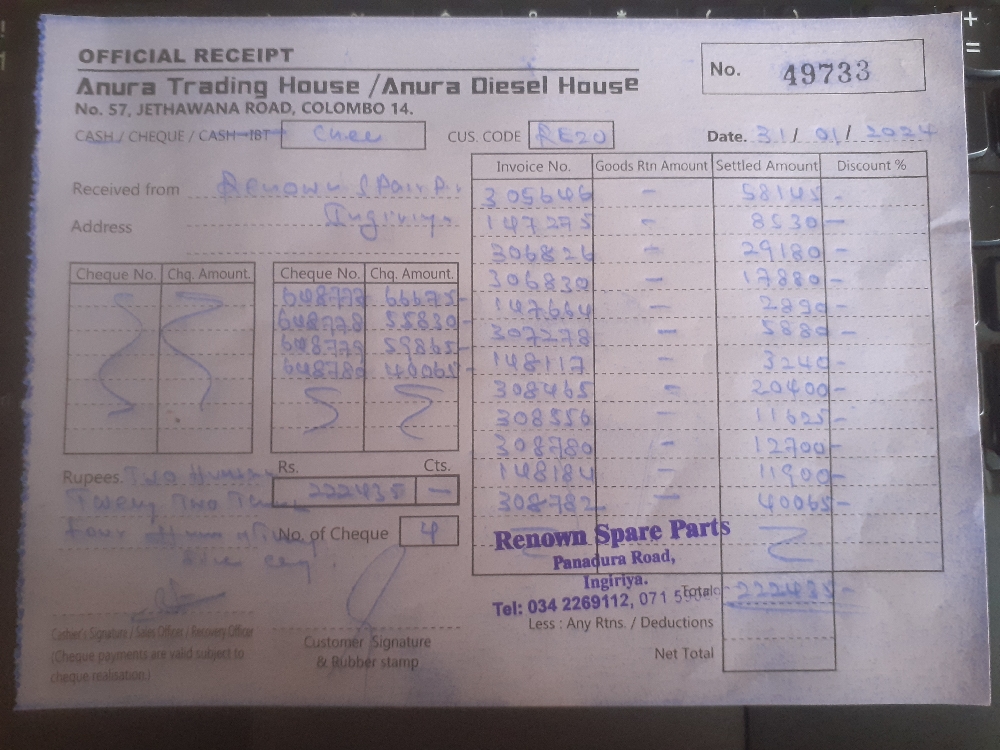 OFFICIAL RECEIPT
Anura Trading House / Anura Diesel House
No. 57, JETHAWANA ROAD, COLOMBO 14.
No. 49733
CASH / CHEQUE / CASH IBT Chee CUS. CODE RE20 Date. 31/ 01/ 2024
Received from Renown Spair P.
Address Ingiriya.
Cheque No. Chq. Amount.
Cheque No. Chq. Amount.
66675-
648778 55830-
648779 59865-
648780 40065-
Invoice No. Goods Rtn Amount Settled Amount Discount %
305646 - 58145 -
147275 - 8530 -
306826 - 29180 -
306830 - 17880 -
147664 - 2890 -
307278 - 5880 -
148117 - 3240 -
308465 - 20400 -
308556 - 11625 -
308780 - 12700 -
148184 - 11900 -
308782 - 40065 -
Rs. Cts.
222435 -
Rupees. Two Hundred
Twenty Two
Four
No. of Cheque 4
Renown Spare Parts
Panadura Road,
Ingiriya.
Tel: 034 2269112, 071
Total 222435 -
Less : Any Rtns. / Deductions
Net Total
Cashier's Signature / Sales Officer / Recovery Officer
(Cheque payments are valid subject to
cheque realisation.)
Customer Signature
& Rubber stamp